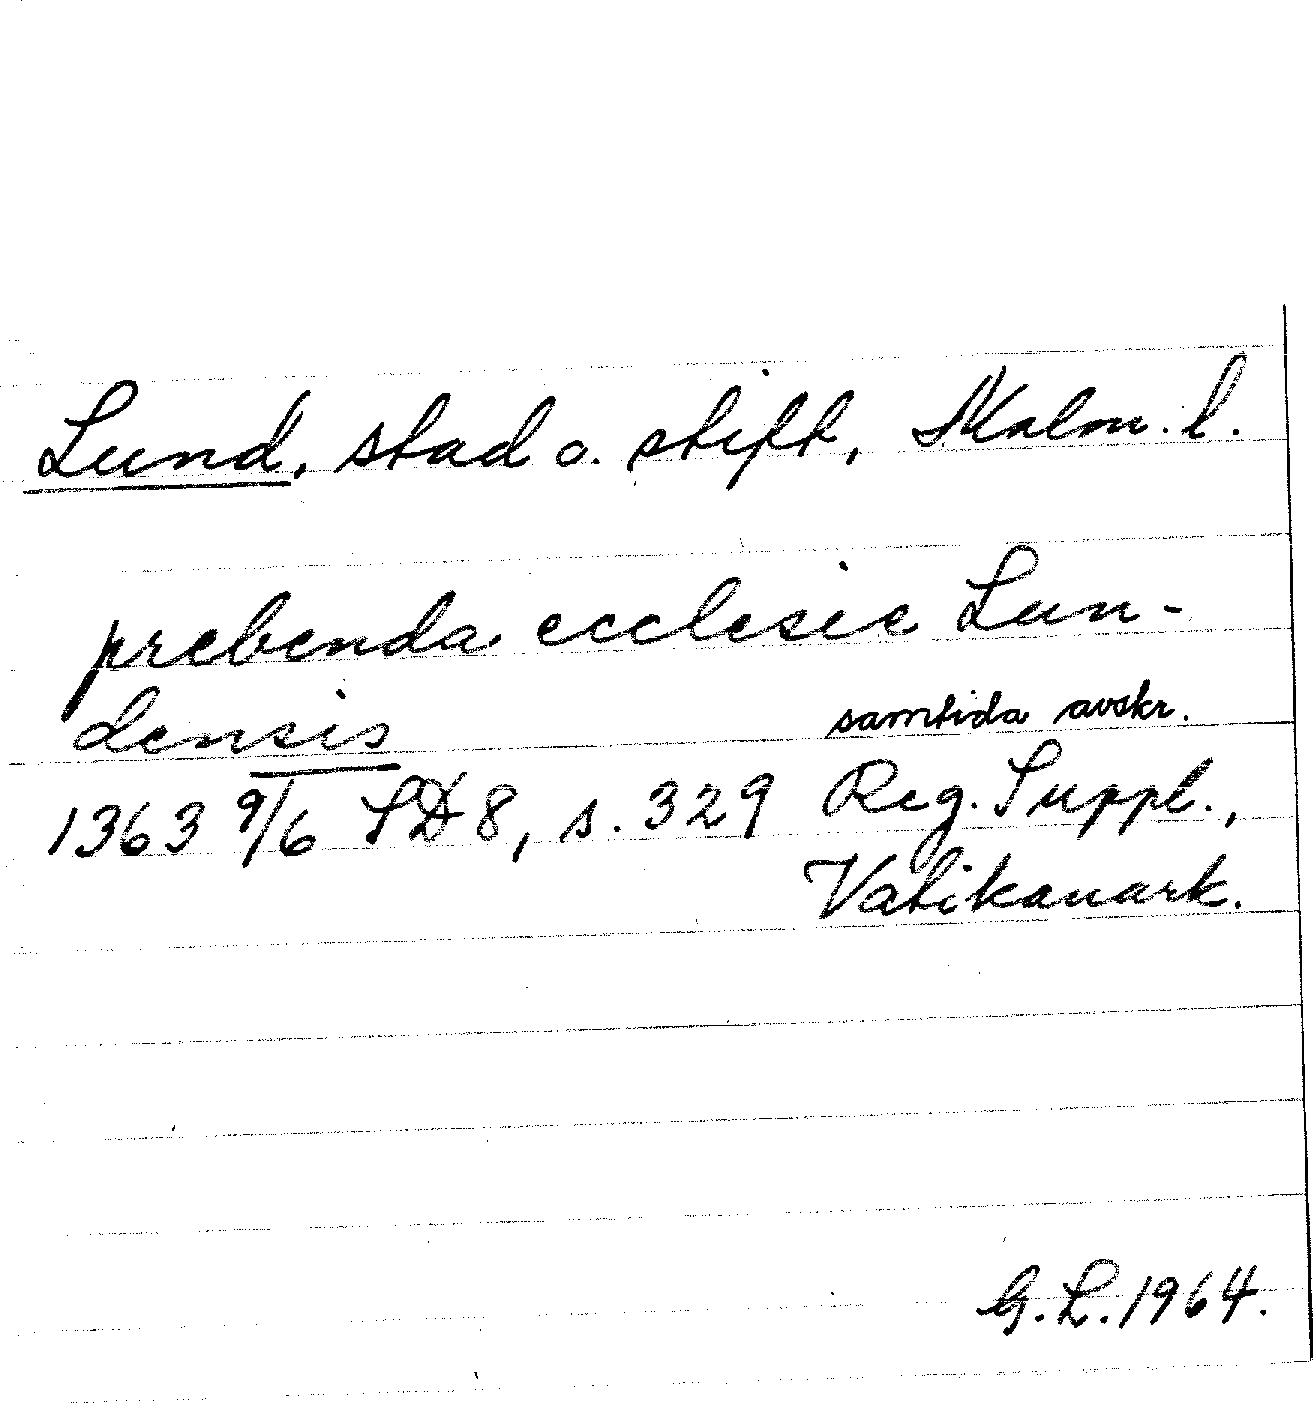 Lund, stad o. stift, Malm. l.
prebenda ecclesie Lun-
densis
samtida avskr.
1363 9/6 SD 8, s. 329 Reg. Suppl.,
Vatikanark.
G.L. 1964.